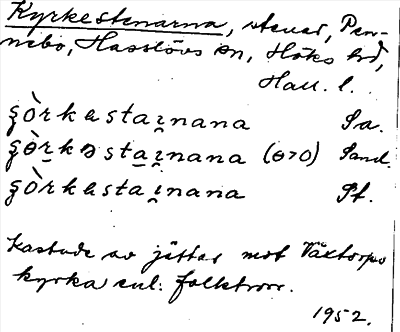 Kyrkestenarna, stenar, Pen-
nebo, Hasslövs sn, Höks hd,
Hall. l.
ʂòrkestai̯nana Sa.
ʂɵ̀rkəstai̯nana (ɵ>o) Sand.
ʂòrkestai̯nana Pt.
Kastade av jättar mot Växtorps
kyrka enl. folktron.
1952.